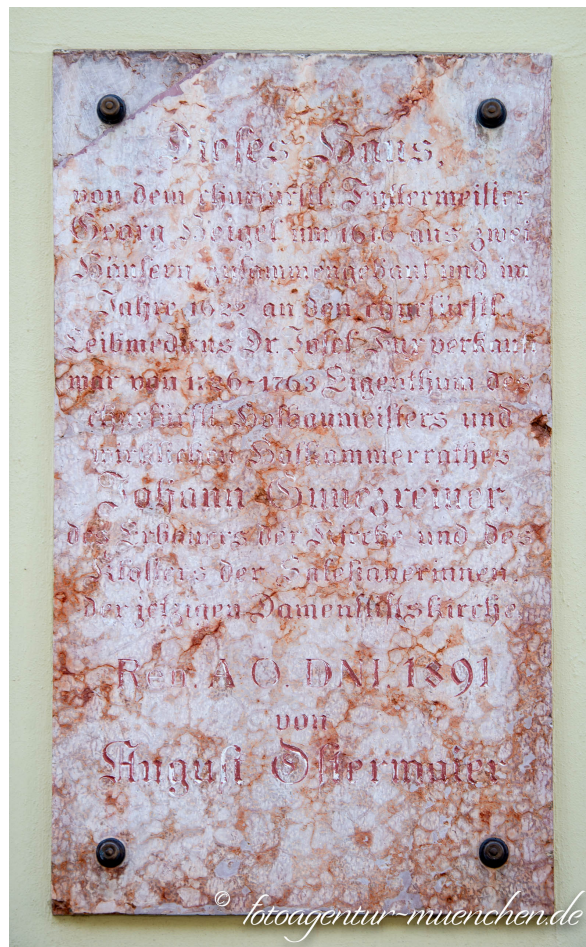 Dieses Haus,
von dem churfürstl. Futtermeister
Georg Weigel um 1616 aus zwei
Häusern zusammengebaut und im
Jahre 1622 an den churfürstl.
Leibmedicus Dr. Josef Fux verkauft
war von 1726-1763 Eigenthum des
churfürstl. Hofbaumeisters und
wirklichen Hofkammerrathes
Johann Gunezreiner,
des Erbauers der Kirche und des
Klosters der Salesianerinnen,
der jetzigen Damenstiftskirche.
Ren. A O. DNI. 1891
von
August Ostermaier
© fotoagentur-muenchen.de